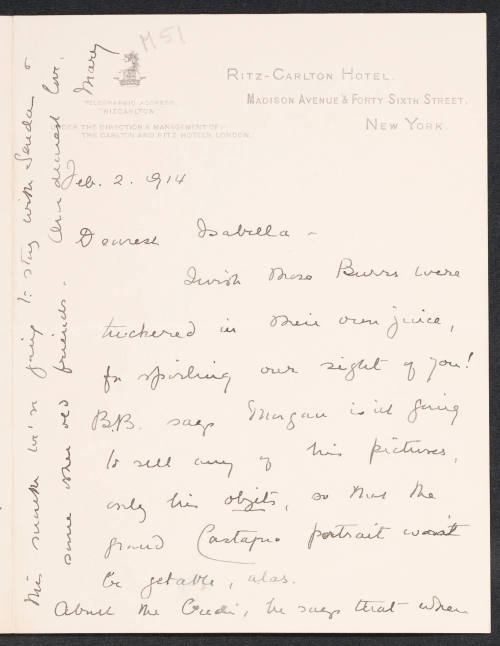 M51
RITZ-CARLTON HOTEL.
MADISON AVENUE & FORTY SIXTH STREET.
NEW YORK
TELEGRAPHIC ADDRESS,
"RIZCARLTON"
UNDER THE DIRECTION & MANAGEMENT OF:
THE CARLTON AND RITZ HOTELS, LONDON.
Feb. 2. 1914
Dearest Isabella –
I wish those Burrs were
tuckered in their own juice,
for spoiling our sight of you!
B.B. says Morgan isn't going
to sell any of his pictures,
only his objets, so that the
grand Castagno portrait won't
be getable, alas.
About the Credi, he says that when
this month we're going to stay with Senda &
some other old friends. Our dearest love.
Mary